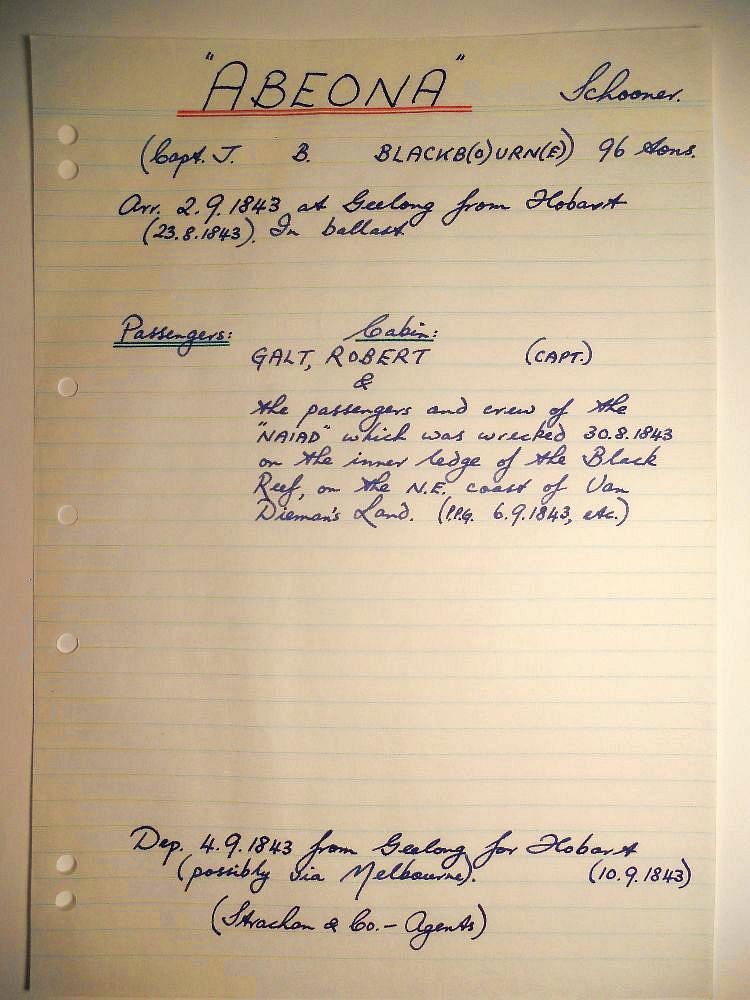 "ABEONA" Schooner.
(Capt. J. B. BLACKB(O)URN(E)) 96 tons.
Arr. 2.9.1843 at Geelong from Hobart
(23.8.1843). In ballast.
Passengers: Cabin:
GALT, ROBERT (CAPT.)
&
the passengers and crew of the
"NAIAD" which was wrecked 30.8.1843
on the inner ledge of the Black
Reef, on the N.E. coast of Van
Dieman's Land. (P.P.G. 6.9.1843, etc.)
Dep. 4.9.1843 from Geelong for Hobart
(possibly via Melbourne). (10.9.1843)
(Strachan & Co. - Agents)